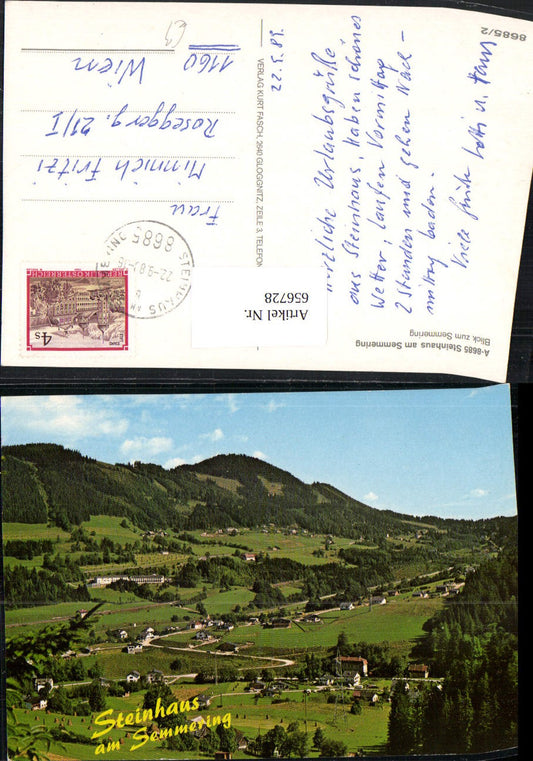 8685/2
A-8685 Steinhaus am Semmering
Blick zum Semmering
22.9.89.
Herzliche Urlaubsgrüße
aus Steinhaus. Haben schönes
Wetter, laufen Vormittag
2 Stunden und gehen Nach-
mittag baden.
Viele Grüße Lotti u. Hans
VERLAG KURT FASCH, 2640 GLOGGNITZ, ZEILE 3, TELEFON
STEINHAUS AM
8685
22.-9.89
REPUBLIK ÖSTERREICH
4 S
Frau
Minnich Fritzi
Roseggerg. 21/I
1160 Wien
Artikel Nr.
656728
Steinhaus
am Semmering